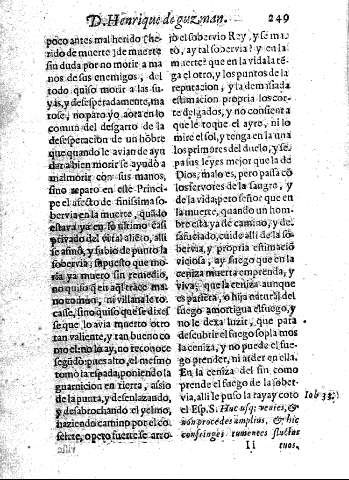 D. Henrique de guzman. 249
poco antes mal herido (he-
rido de muerte) de muerte
sin duda por no morir a ma
nos de sus enemigos, del
todo quiso morir a las su-
yas, y desesperadamente, ma
tose, no paro yo aora en lo
comun del desgarro de la
desesperacion de un hõbre
que quando le avian de ayu
dar a bien morir se ayudò a
mal morir con sus manos,
sino reparo en este Princi-
pe el afecto de finissima so-
bervia en la muerte, quãdo
estarìa ya en lo ultimo casi
privado del vital aliẽto, alli
se afinò, y subio de punto la
sobervia, supuesto que mo-
ria ya muero sin remedio,
no quiso q̃ en aq̃l trãce ma-
no comũn, ni villana le to-
casse, sino quiso que se dixes
se que lo avia muerto otro
tan valiente, y tan bueno co
mo el no lo ay, no reconoce
segũdo: pues alto, el mesmo
tomò la espada, poniendo la
guarnicion en tierra, assio
de la punta, y desenlazando,
y desabrochando el yelmo,
haziendo camino por el co-
selete, opero fuerte se arro-
jò el sobervio Rey, y se ma
tò, ay tal sobervia? y en la
muerte? que en la vida la tẽ
ga el otro, y los puntos de la
reputacion, y la demasiada
estimacion propria los cor-
te delgados, y no consienta
que le toque el ayre, ni lo
mire el sol, y tenga en la una
los primores del duelo, y se-
pa sus leyes mejor que la de
Dios, malo es, pero passa cõ
los fervores de la sangre, y
de la vida; pero señor que en
la muerte, quando un hom-
bre està ya de camino, y de-
sañuciado, cuide alli de la so
bervia, y propria estimaciõ
viciosa, ay fuego que en la
ceniza muerta emprenda, y
viva, que la ceniza aunque
es pariera, o hija natural del
fuego amortigua el fuego, y
no le dexa luzir, que para
descubrir el fuego sopla mos
la ceniza, y no puede el fue-
go prender, ni arder en ella.
En la ceniza del fin como
prende el fuego de la sober-
via, alli le puso la raya y coto
el Esp. S. Huc usq; venies, &
non procedes amplius, & hic
confringes tumentes fluctus
Iob 38.
Ii tuos.